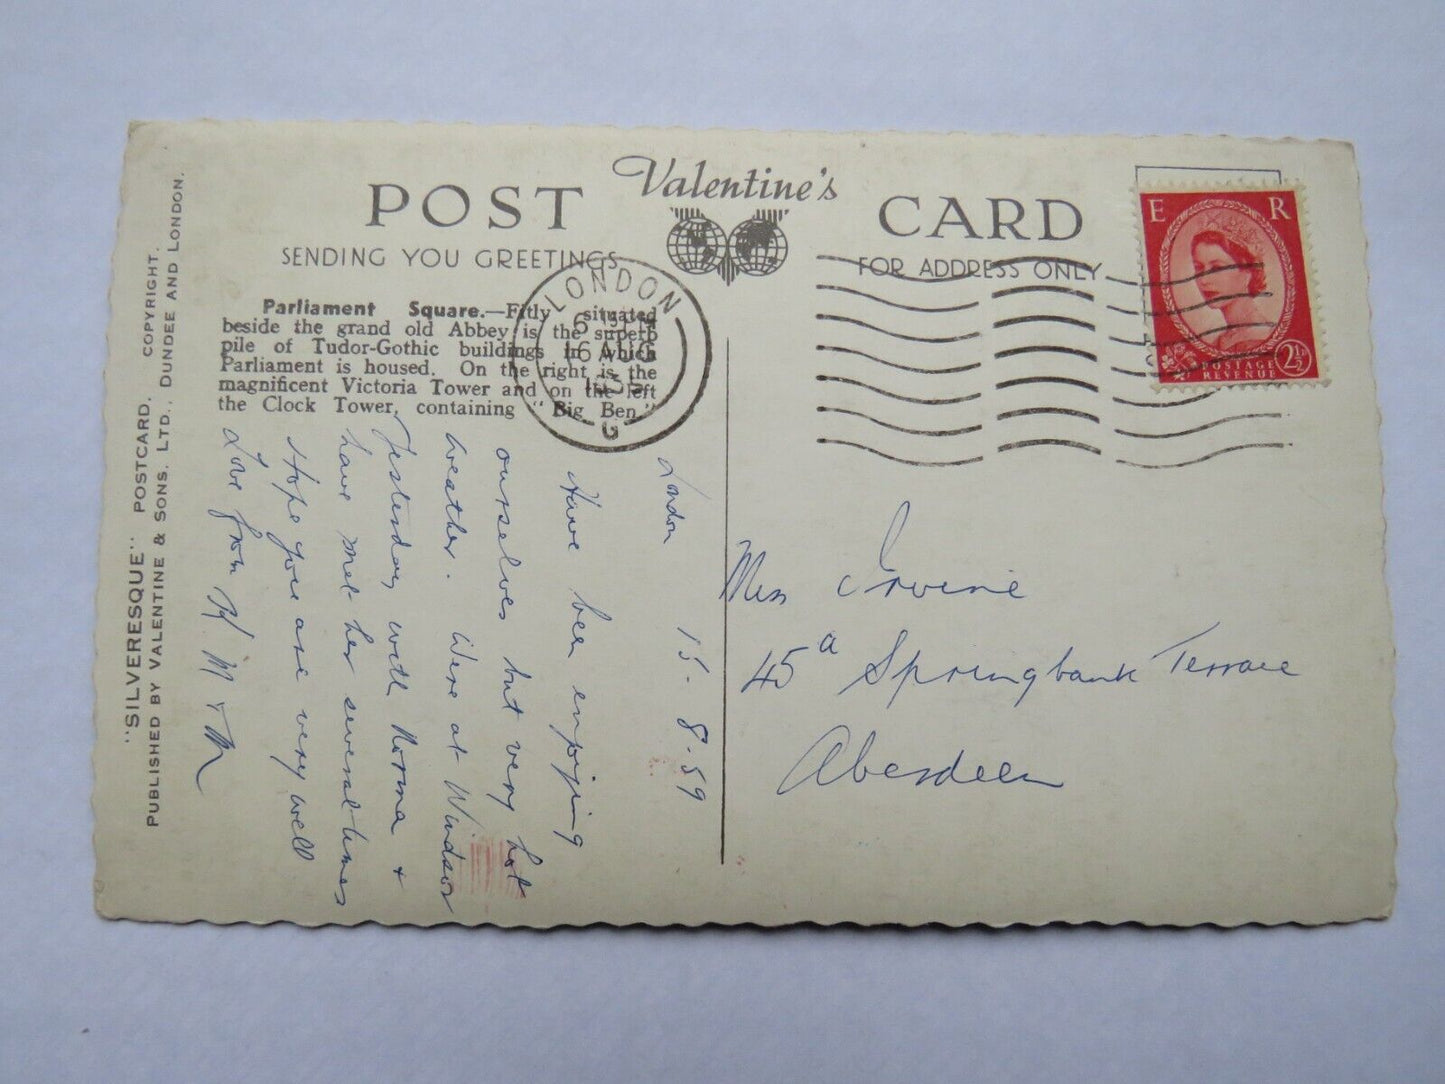 POST Valentine's CARD
SENDING YOU GREETINGS
FOR ADDRESS ONLY
E R
POSTAGE 2½
REVENUE
LONDON
16 AUG
G
Parliament Square.—Fitly situated
beside the grand old Abbey is the superb
pile of Tudor-Gothic buildings in which
Parliament is housed. On the right is the
magnificent Victoria Tower and on the left
the Clock Tower, containing "Big Ben."
"SILVERESQUE" POSTCARD. COPYRIGHT.
PUBLISHED BY VALENTINE & SONS. LTD., DUNDEE AND LONDON.
London 15-8-59
Have been enjoying
ourselves but very hot
weather. Were at Windsor
Yesterday with Norma +
have met her several times
Hope you are very well
Love from M + M
Miss Irvine
45a Springbank Terrace
Aberdeen